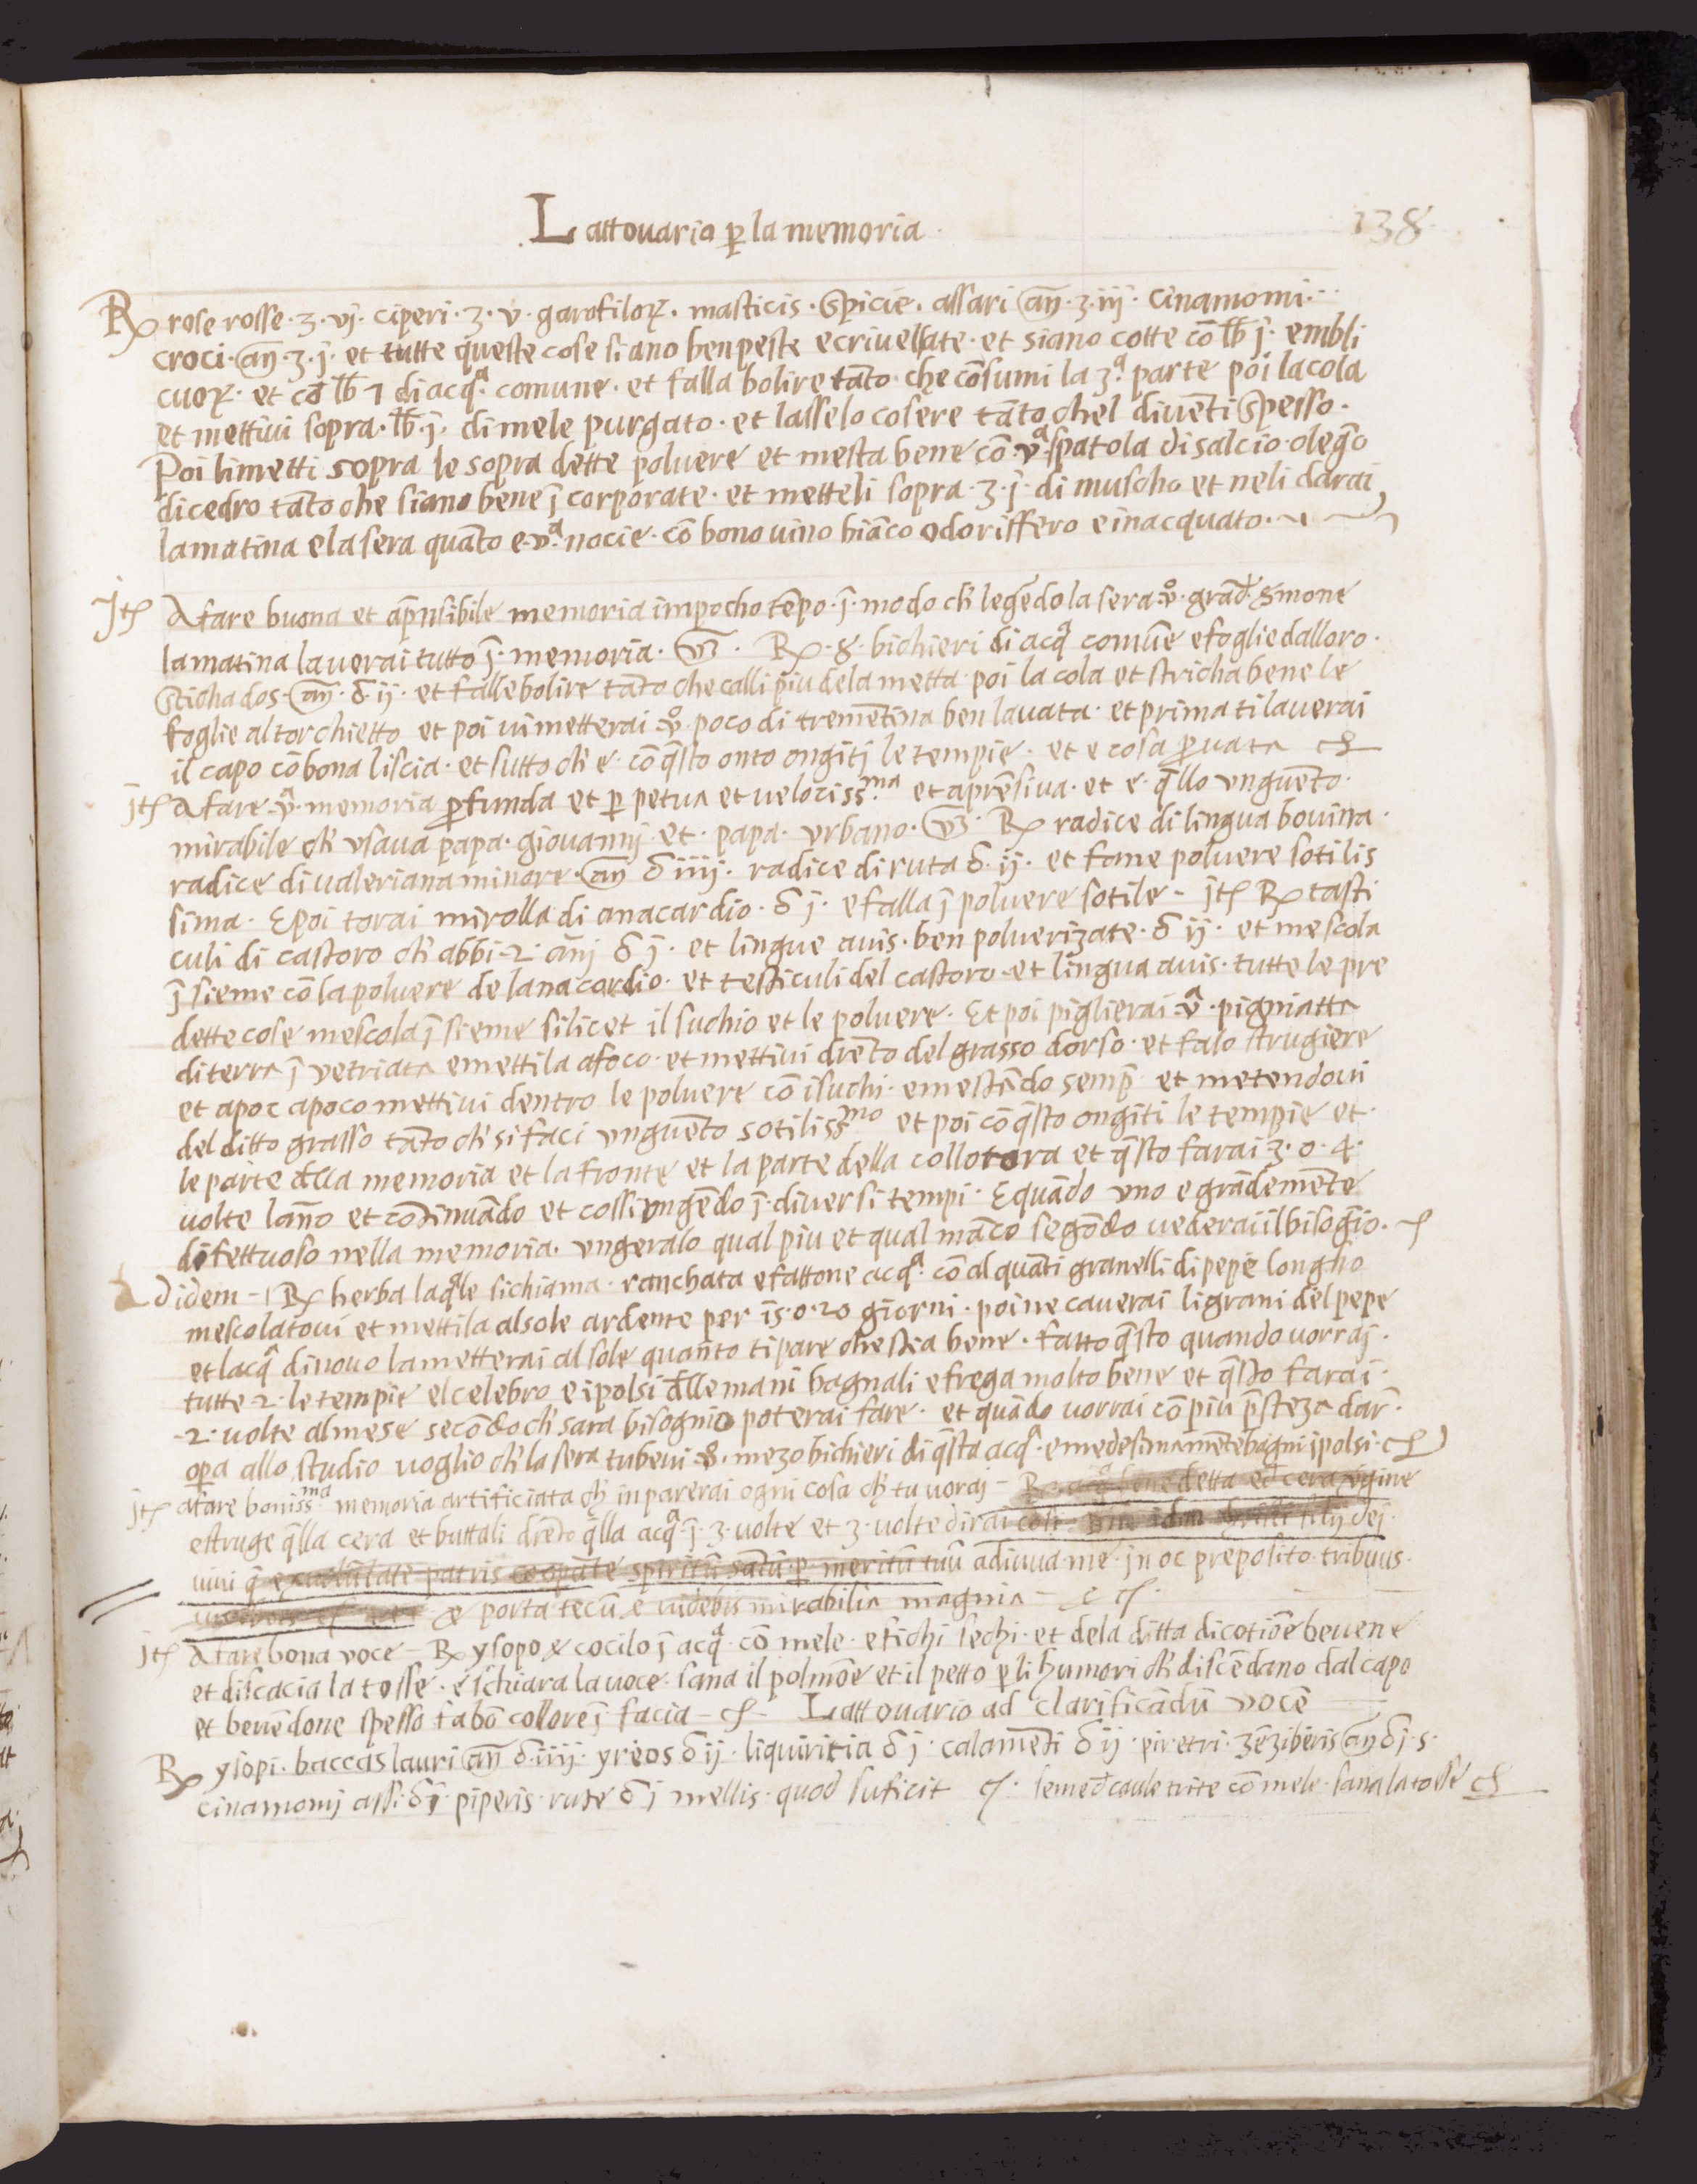 Lattouario p̱ la memoria
138
℞ rose rosse · ʒ · vj · ciperi · ʒ · v · garofiloꝝ · masticis · Spicie · assari añ · ʒ · iij · cinamomi ·
croci · añ · ʒ · j · et tutte queste cose siano ben peste e criuellate · et siano cotte cō lb j · embli
cuoꝝ · et cō lb 1 di acqᵃ comune · et falla bolire tāto che cōsumi la 3ᵃ parte poi la cola
et mettiui sopra · lb · j · di mele purgato · et lasselo cosere tāto chel diuēti Spesso ·
Poi li metti sopra le sopra dette poluere et mesta bene cō vᵃ spatola di salcio o legō
di cedro tāto che siano bene j̄ corporate · et metteli sopra · ʒ · j · di muscho et neli darai
la matina e la sera quāto e vᵃ nocie · cō bono uino biāco odoriffero e inacquato ·
jtꝭ A fare buona et ap̄nsibile memoria impocho tēpo · j̄ · modo ch' legēdo la sera vº grād' s̄mone
la matina lauerai tutto j̄ · memoria · ℞ · 8 · bichieri di acqᵃ comūe e foglie dalloro ·
Sticha dos · añ · δ · ij · et falle bolire tāto che calli piu dela metta poi la cola et stricha bene le
foglie al torchietto et poi ui metterai vº poco di tremētina ben lauata · et prima ti lauerai
il capo cō bona liscia · et sutto ch' e · cō q̄sto onto ongiti le tempie · et e cosa ꝓuata
jtꝭ A fare vᵃ memoria ꝓfunda et p̱petua et uelocissᵐᵃ et aprēsiua · et e q̄llo vnguēto ·
mirabile ch' vsaua papa · giouannj et · papa · vrbano · ℞ radice di lingua bouina ·
radice di ualeriana minore · añ δ iiij · radice di ruta δ · ij · et fane poluere sotilis
sima · E poi torai mirolla di anacardio · δ j · e falla j̄ poluere sotile - jtꝭ ℞ tasti
culi di castoro ch' abbi · 2 · anj δ j · et lingue auis · ben poluerizate · δ ij · et mescola
j̄ sieme cō la poluere de lanacordio · et testiculi del castoro · et lingua auis · tutte le pre
dette cose mescola j̄ sieme silicet il suchio et le poluere · Et poi piglierai · vᵃ · pigniatta
di terra j̄ vetriata e mettila a foco · et mettiui drēto del grasso dorso · et falo strugiere
et apoc apoco mettiui dentro le poluere cō i suchi · e mestādo semp̱ et metendoui
del ditto grasso tāto ch' si faci vnguēto sotilissᵐᵒ et poi cō q̄sto ongiti le tempie et ·
le parte d̄lla memoria et la fronte et la parte della collotora et q̄sto farai 3 · o · 4 ·
uolte lāno et cōtinuādo et cossi vngēdo j̄ · diuersi tempi · E quādo vno e grādemēte
difettuoso nella memoria · vngeralo qual piu et qual māco segōdo uederai il bisogīo ·
Ad idem - ℞ herba la q̄le si chiama · ranchata e fattone acqᵃ · cō alquāti granelli di pepe longho
mescolatoui et mettila al sole ardente per 15 · o · 20 giorni · poi ne cauerai li grani del pepe
et lacqᵃ di nouo la metterai al sole quanto ti pare che stia bene · fatto q̄sto quando uorraj ·
tutte · 2 · le tempie el celebro e i polsi d̄lle mani bagnali e frega molto bene et q̄sto farai ·
· 2 · uolte al mese secōdo ch' sara bisognio poterai fare · et quādo uorrai cō piu p̄steza dar̄ ·
op̱a allo studio uoglio ch' la sera tu beui · vº · mezo bichieri di q̄sta acqᵃ · e medesimamēte bagni j polsi ·
jtꝭ a fare bonissᵐᵃ memoria artificiata ch' inparerai ogni cosa ch' tu uoraj - ℞ acqᵃ benedetta ed cera uigine
e struge q̄lla cera et buttali drēto q̄lla acqᵃ · j̄ · 3 · uolte et 3 · uolte dirai cosi · filij dej ·
uiui q̄ ex uolūtate patris co opāte spiritū sātū · p̱ · meritū tuū adiuua me · jn oc preposito · tribuus ·
& porta tecū e uidebis mirabilia magnia
jtꝭ A fare bona voce - ℞ ysopo & cocilo j̄ acqᵃ · cō mele · e fichi sechi · et dela ditta dicotiōe beuene
et discacia la tosse · e schiara la uoce · sana il polmōe et il petto p̱ li humori ch' discēdano dal capo
et beuēdone spesso fa bō collore j̄ facia - Lattouario ad clarificādū vocē
℞ ysopi · baccas lauri añ δ · iiij · yreos δ ij · liquiritia δ j · calamēti δ ij · piretri · zēziberis añ δ j · s ·
cinamomj assi · δ j · piperis · rute δ j mellis · quod suficit · seme d' caule trite cō mele · sana la tosse